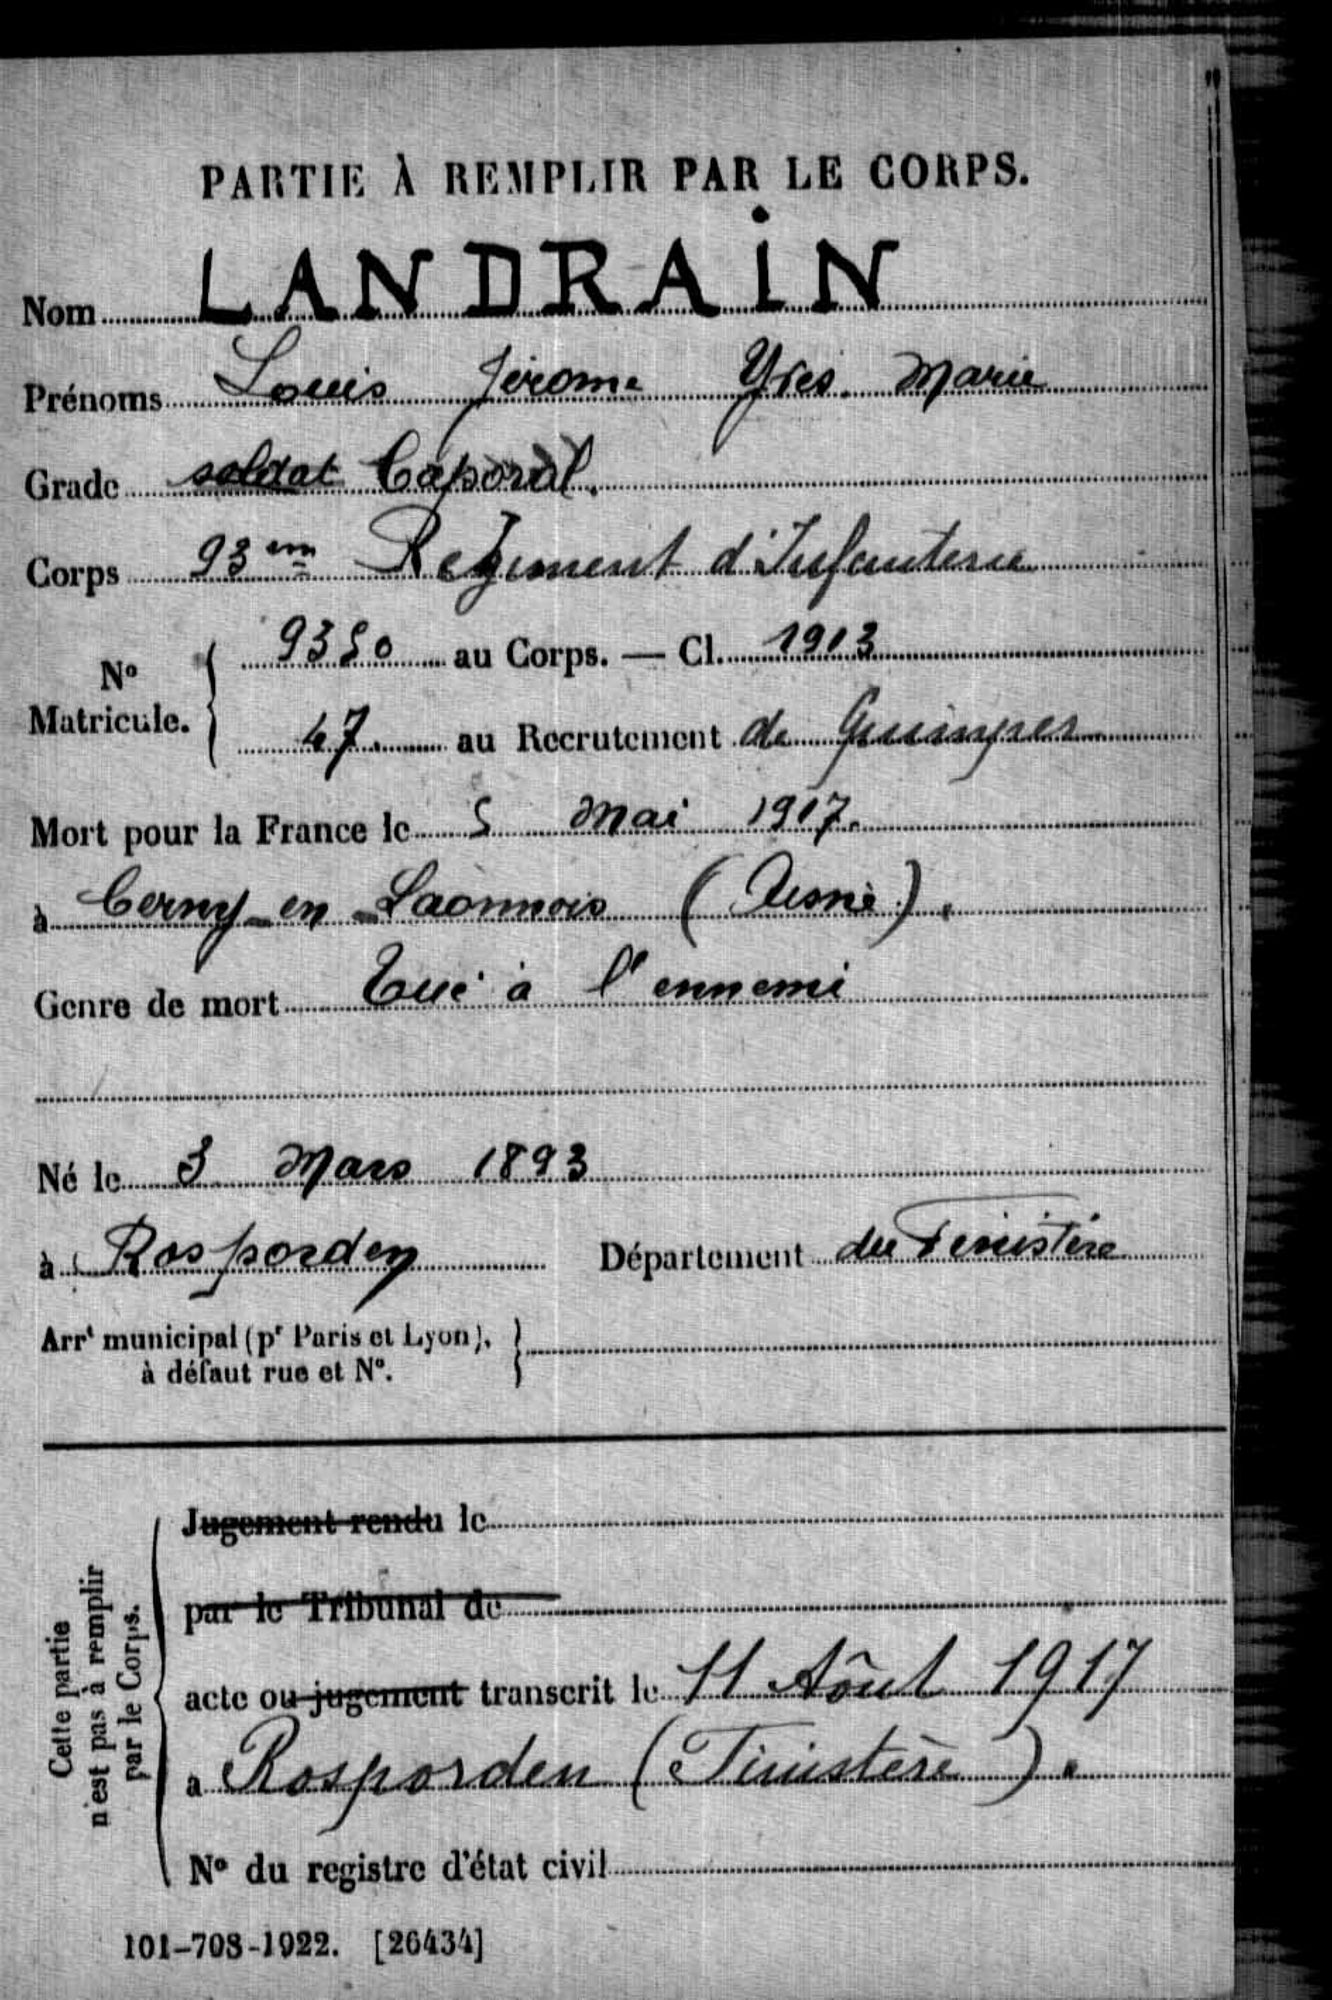 PARTIE À REMPLIR PAR LE CORPS.
Nom LANDRAIN
Prénoms Louis Jérome Yves Marie
Grade soldat Caporal.
Corps 93em Regiment d'Infanterie
No Matricule. 9380 au Corps. — Cl. 1913
47. au Recrutement de Quimper
Mort pour la France le 5 Mai 1917.
à Cerny-en-Laonnois (Aisne).
Genre de mort Tué à l'ennemi
Né le 3 Mars 1893
à Rosporden Département du Finistère
Arrt municipal (pr Paris et Lyon),
à défaut rue et No.
Cette partie
n'est pas à remplir
par le Corps.
Jugement rendu le
par le Tribunal de
acte ou jugement transcrit le 11 Aôut 1917
a Rosporden (Finistère).
No du registre d'état civil
101-708-1922. [26434]